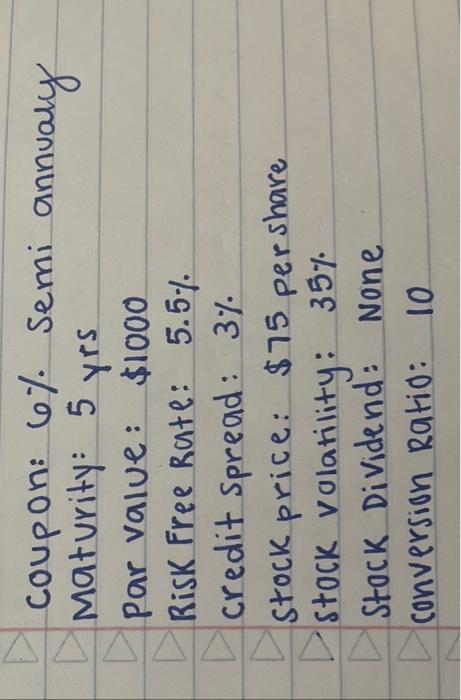 Coupon: 6% Semi annualy
Maturity: 5 yrs
Par value: $1000
Risk Free Rate: 5.5%
Credit Spread: 3%
Stock price: $75 per share
Stock Volatility: 35%
Stock Dividend: None
Conversion Ratio: 10